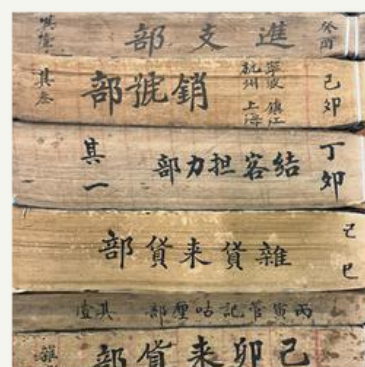 癸酉 進支部
己卯 寧波 鎮江 杭州 上海 銷號部 其叁
丁卯 結客担力部 其一
己巳 雜貨来貨部
丙寅管記咕厘部 其壹
己卯来貨部 雜